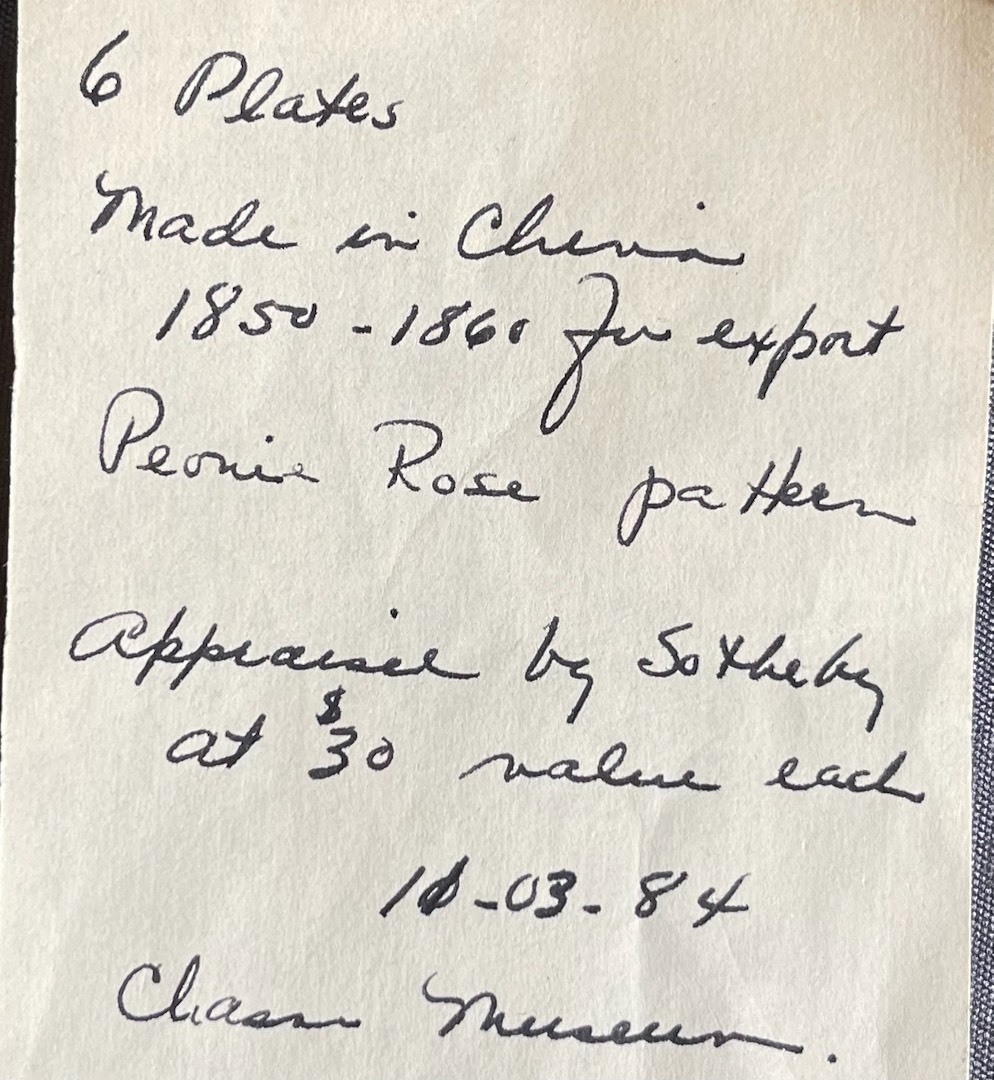 6 Plates
Made in China
1850 - 1860 for export
Peonie Rose pattern
Appraised by Sotheby
at $30 value each
-03-84
Museum.